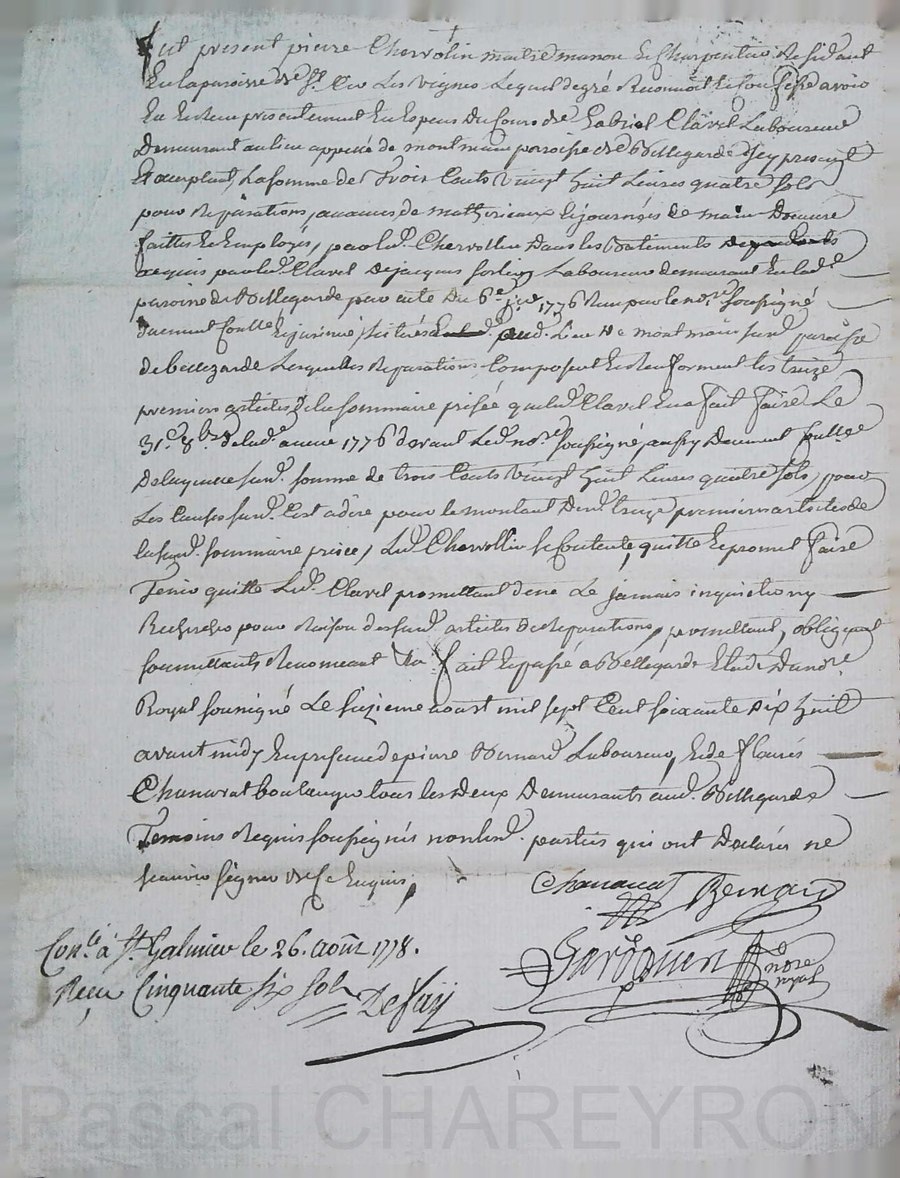 fut present pierre Chervolin maitre masson et Charpentier Residant
En la paroisse de St. Cir Les vignes Lequel de gré Reconnoit et Confesse avoir
Eu et Receu presentement En Especes du Cours de Gabriel Clavel Laboureur
Demeurant au lieu appellé de montmain paroisse de Bellegarde Icy present
Et acceptant, La somme de Trois Cents vingt huit Livres quatre sols
pour Reparations, avances de matherieaux Et journées de main Doeuvre
faittes Et Employés, par led. Chervollin Dans les Batiments
acquis par led. Clavel De jacques Laboureur demeurant En lad.
paroisse de Bellegarde par acte Du 6e. 1776 Reçu par le nore. soussigné
duement Contlé Et insinué, scitués aud. Lieu De montmain susd. paroisse
de bellegarde Lesquelles Reparations, Composent Et Renferment les treize
premiers articles de la sommaire prisée que led. Clavel En a fait faire Le
31e. 8bre. de lad. année 1776 devant Led. nore. soussigné aussy Duement Conttée
De laquelle susd. somme de trois Cents vingt huit Livres quatre sols, pour
Les Causes susd. C'est a dire pour le montant Desd. treize premiers articles de
la susd. sommaire prisée, Led. Chervollin se Contente, quitte Et promet faire
Tenir quitte Led. Clavel promettant de ne Le jamais inquieter ny
Rechercher pour Raison des susd. articles de Reparations, promettant, obligeant
soumettants Renonceant &a fait Et passé a Bellegarde Etude Du nore.
Royal soussigné Le seizieme aoust mil sept Cent soixante dix huit
avant midy En presence de pierre Bernard Laboureur, Et de fleurés
Chanavat boulanger tous les Deux Demeurants aud. Bellegarde
Temoins Requis soussignés non lesd. parties qui ont Declarés ne
scavoir signer de Ce Enquis,
Chanavat Bernard
Con.lé à St. Galmier le 26. août 1778.
Reçu Cinquante six sols Defay
nore royal
Pascal CHAREYRON